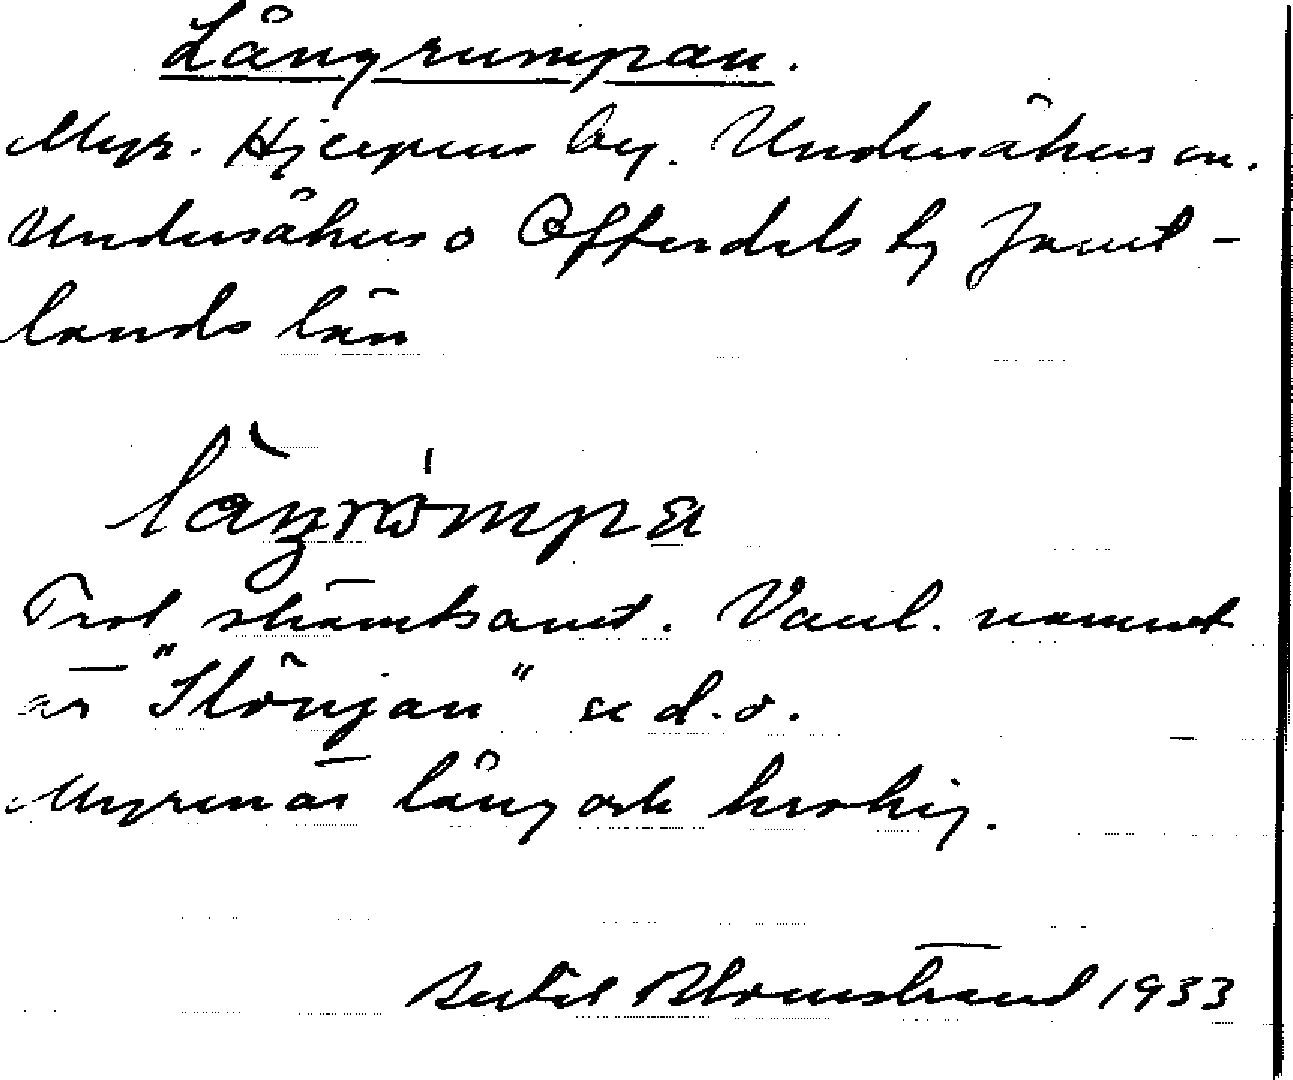 Långrumpan.
Myr. Hjerpens by. Undersåkers sn.
Undersåkers o Offerdals tg Jämt-
lands län
Trol skämtsamt. Vanl. namnet
är "Slöngan" e d.o.
Myren är lång och krokig.
Bertil Blomstrand 1933